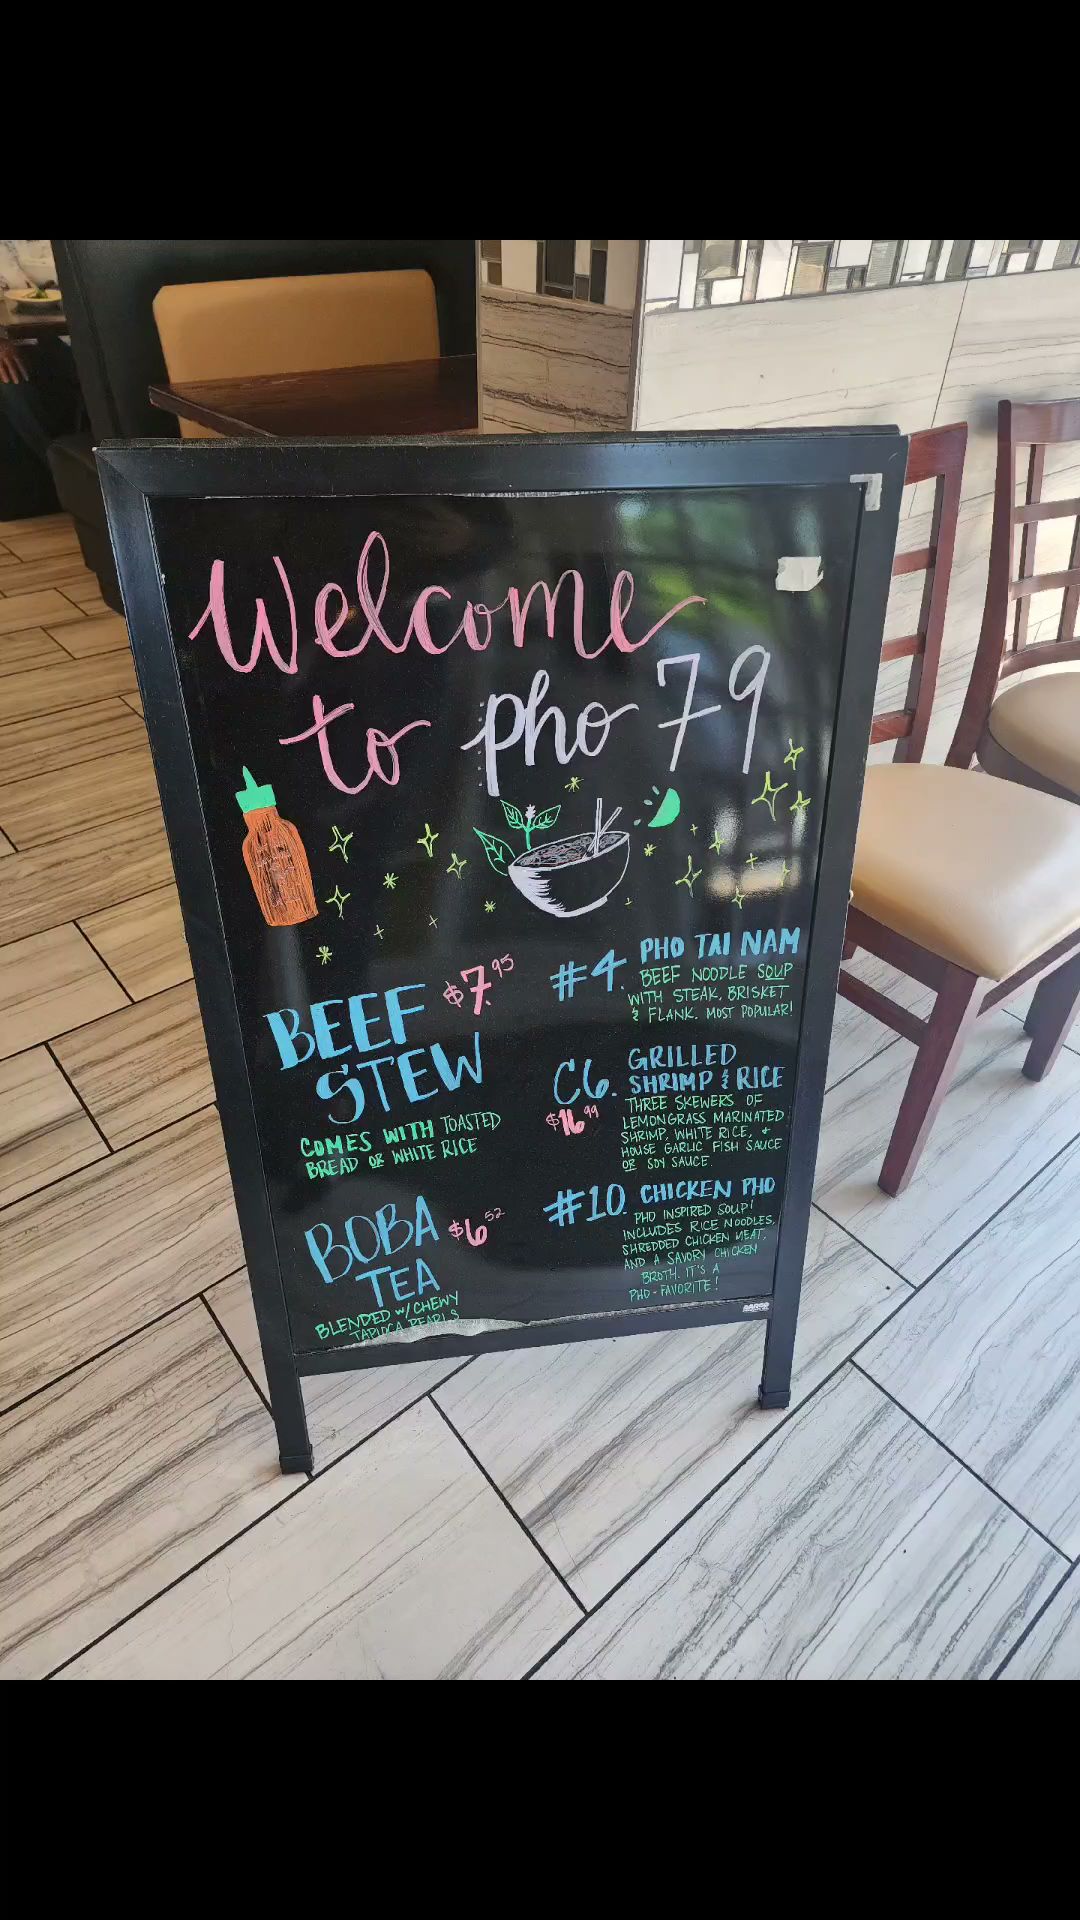 Welcome
to pho 79
BEEF $7.95
STEW
COMES WITH TOASTED
BREAD OR WHITE RICE
BOBA $6.52
TEA
BLENDED W/ CHEWY
TAPIOCA PEARLS
#4. PHO TAI NAM
BEEF NOODLE SOUP
WITH STEAK, BRISKET
& FLANK. MOST POPULAR!
C6. GRILLED
SHRIMP & RICE
$16.99
THREE SKEWERS OF
LEMONGRASS MARINATED
SHRIMP, WHITE RICE, +
HOUSE GARLIC FISH SAUCE
OR SOY SAUCE.
#10. CHICKEN PHO
PHO INSPIRED SOUP!
INCLUDES RICE NOODLES,
SHREDDED CHICKEN MEAT,
AND A SAVORY CHICKEN
BROTH. IT'S A
PHO-FAVORITE!